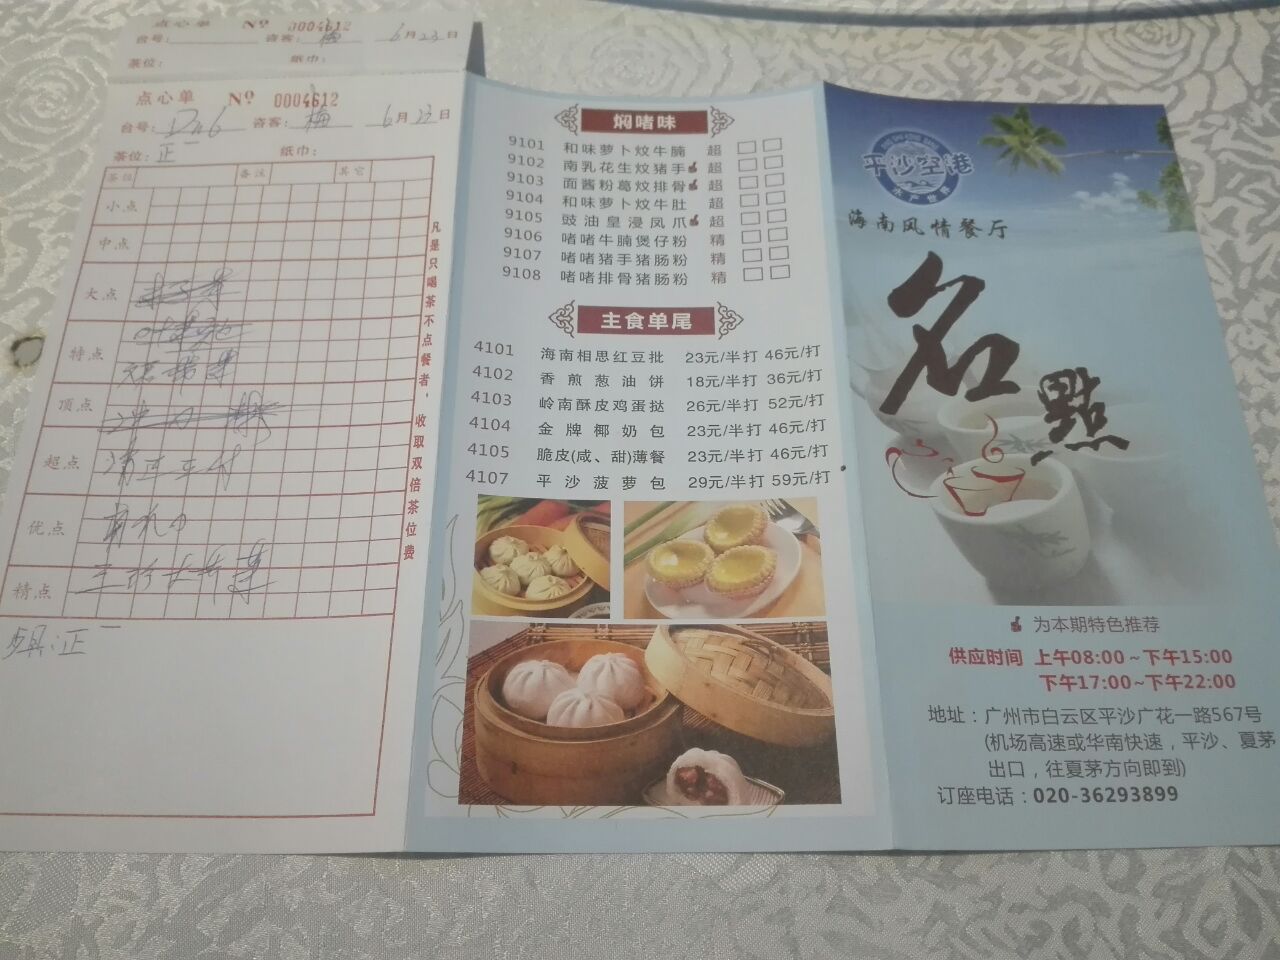 点心单 № 0004612
台号： 咨客：梅 6月23日
茶位： 纸巾：
点心单 № 0004612
台号： 咨客：梅 6月23日
茶位：正一 纸巾：
茶位 备注 其它
小点
中点
大点
特点
顶点
超点
优点
精点
凡是只喝茶不点餐者，收取双倍茶位费
焖啫味
9101 和味萝卜炆牛腩 超
9102 南乳花生炆猪手 超
9103 面酱粉葛炆排骨 超
9104 和味萝卜炆牛肚 超
9105 豉油皇浸凤爪 超
9106 啫啫牛腩煲仔粉 精
9107 啫啫猪手猪肠粉 精
9108 啫啫排骨猪肠粉 精
主食单尾
4101 海南相思红豆批 23元/半打 46元/打
4102 香煎葱油饼 18元/半打 36元/打
4103 岭南酥皮鸡蛋挞 26元/半打 52元/打
4104 金牌椰奶包 23元/半打 46元/打
4105 脆皮(咸、甜)薄餐 23元/半打 46元/打
4107 平沙菠萝包 29元/半打 59元/打
平沙空港
水产世界
海南风情餐厅
名點
为本期特色推荐
供应时间 上午08:00~下午15:00
下午17:00~下午22:00
地址：广州市白云区平沙广花一路567号
(机场高速或华南快速，平沙、夏茅
出口，往夏茅方向即到)
订座电话：020-36293899